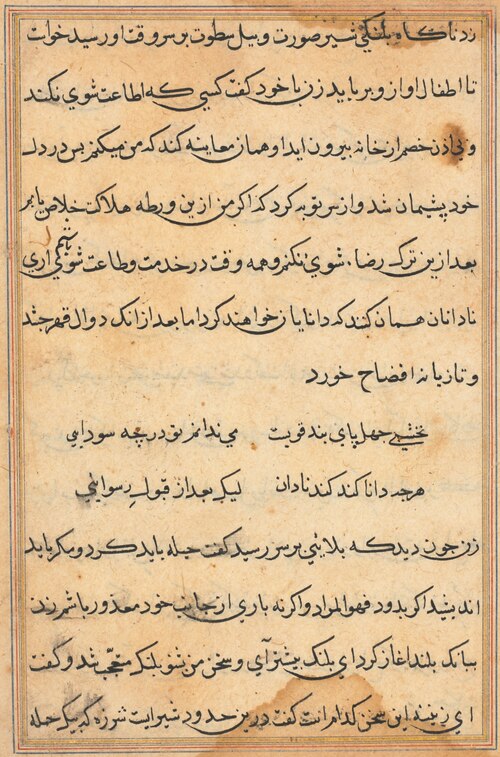 زد ناکاه پلنکی شیر صورت و پیل سطوت بر سر وقت او رسید خواست
تا اطفال او از وی رباید زن با خود کفت کسی که اطاعت شوی نکند
و بی اذن خصم از خانه بیرون اید او همان معاینه کند که من میکنم پس در دل
خود پشیمان شد و از سر توبه کرد که اکر من از ین ورطه هلاک خلاص یابم
بعد ازین ترک رضاء شوی نکنم و همه وقت در خدمت و طاعت شوی باشم اری
نادانان همان کنند که دانایان خواهند کرد اما بعد از انک دوال قهر چند
و تازیانه افضاح خورد
نخشبی جهل پای بند قویست می ندانم تو در چه سودایی
هرچه دانا کند کند نادان لیک بعد از قبول رسوایی
زن چون دید که بلائی بر سر رسید کفت حیله باید کرد و مکر باید
اندیشید اکر بدود فهو المراد و اکرنه باری از جانب خود معذور باشم زن
ببانک بلند اغاز کرد ای پلنک پیشتر آی و سخن من شنو پلنک متعجب شد و کفت
ای زن چه این سخن کدامرانست کفت درین حدود شیریست شرزه که بیک حمله